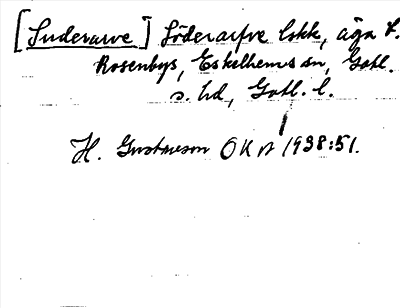 [Suderarve] Söderarfve lskk, äga t.
Rosenbys, Eskelhems sn, Gotl.
s. hd, Gotl. l.
H. Gustavson OKA 1938:51.